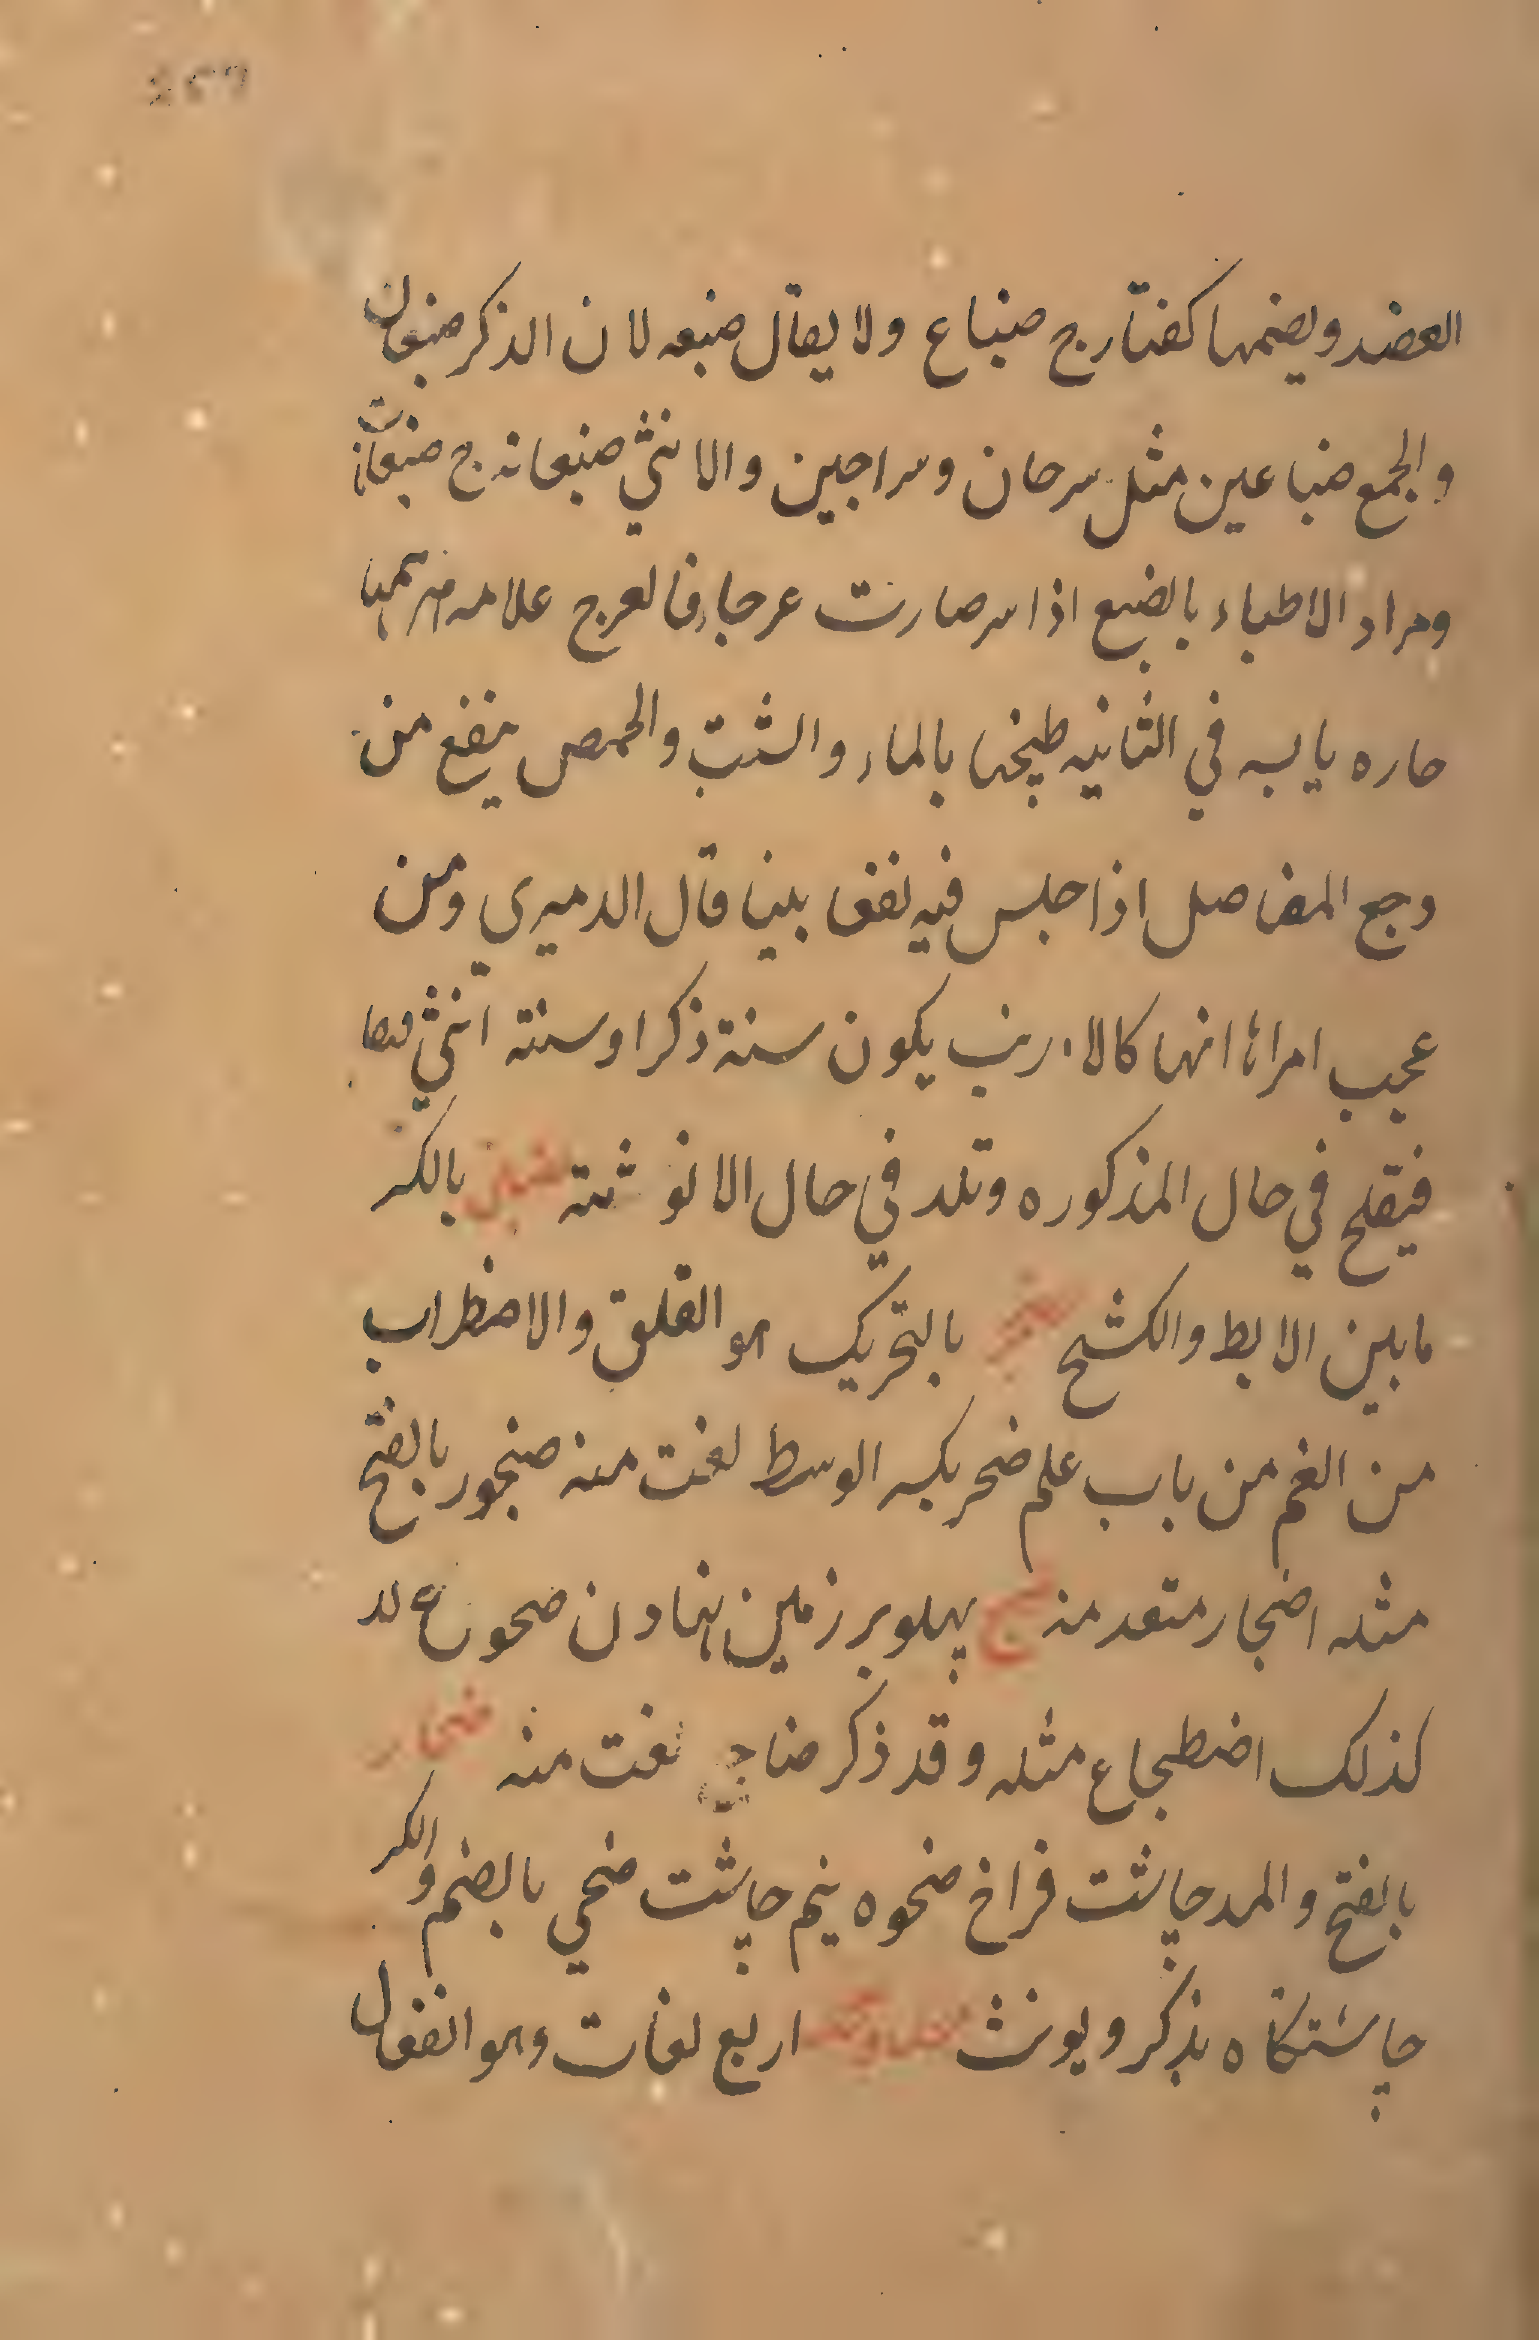 العضد وبضمها كفتارج ضباع ولا يقال ضبعه لان الذكر ضبعان
والجمع ضباعين مثل سرحان وسراجين والانثي ضبعانه ج ضبعانات
ومراد الاطباء بالضبع اذا سر صارت عرجا، فالعرج علامه
حاره يابسه في الثانيه طبخها بالماء والشبت والحمص ينفع من
وجع المفاصل اذا جلس فيه نفعا بينا قال الدميري ومن
عجيب امرها انها كالارنب يكون سنة ذكرا وسنته انثي
فيقلح في حال المذكوره وتلد في حال الانوثته ضبن بالكسر
مابين الابط والكشح ضجر بالتحريك هو القلق والاضطراب
من الغم من باب علم ضجر بكسر الوسط لغت منه ضجور بالفتح
مثله اضجار متعد منه پهلو بر زمين نهادن ضجوع
كذلك اضطجاع مثله وقد ذكر ضاجع نعت منه ضحا
بالفتح والمد چاشت فراخ ضحوه نيم چاشت ضحي بالضم والكسر
چاشتكاه يذكر ويونث اربع لغات وهو انفعال